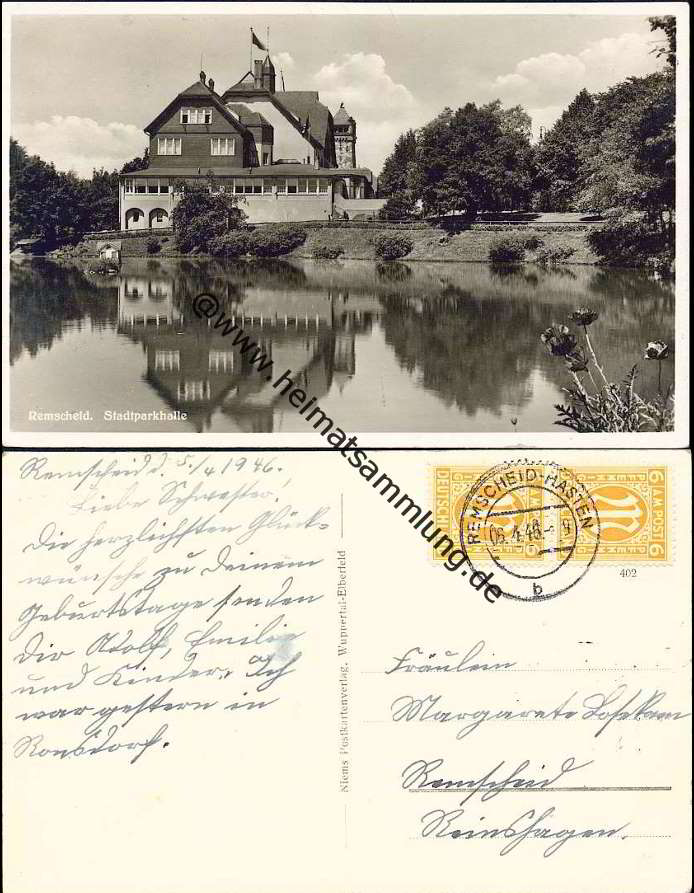 Remscheid. Stadtparkhalle
@www.heimatsammlung.de
Remscheid d. 5./4 1946.
Liebe Schwester!
Die herzlichsten Glück-
wünsche zu Deinem
Geburtstage senden
Dir Adolf, Emilie
und Kinder. Ich
war gestern in
Ronsdorf.
Niems Postkartenverlag, Wuppertal-Elberfeld
DEUTSCH
6 AM POST 6
REMSCHEID-HASTEN
06.4.46.-9
b
402
Fräulein
Margarete
Remscheid
Reinshagen.